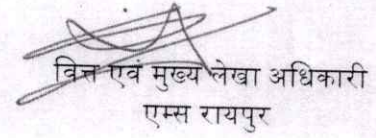 वित्त एवं मुख्य लेखा अधिकारी
एम्स रायपुर